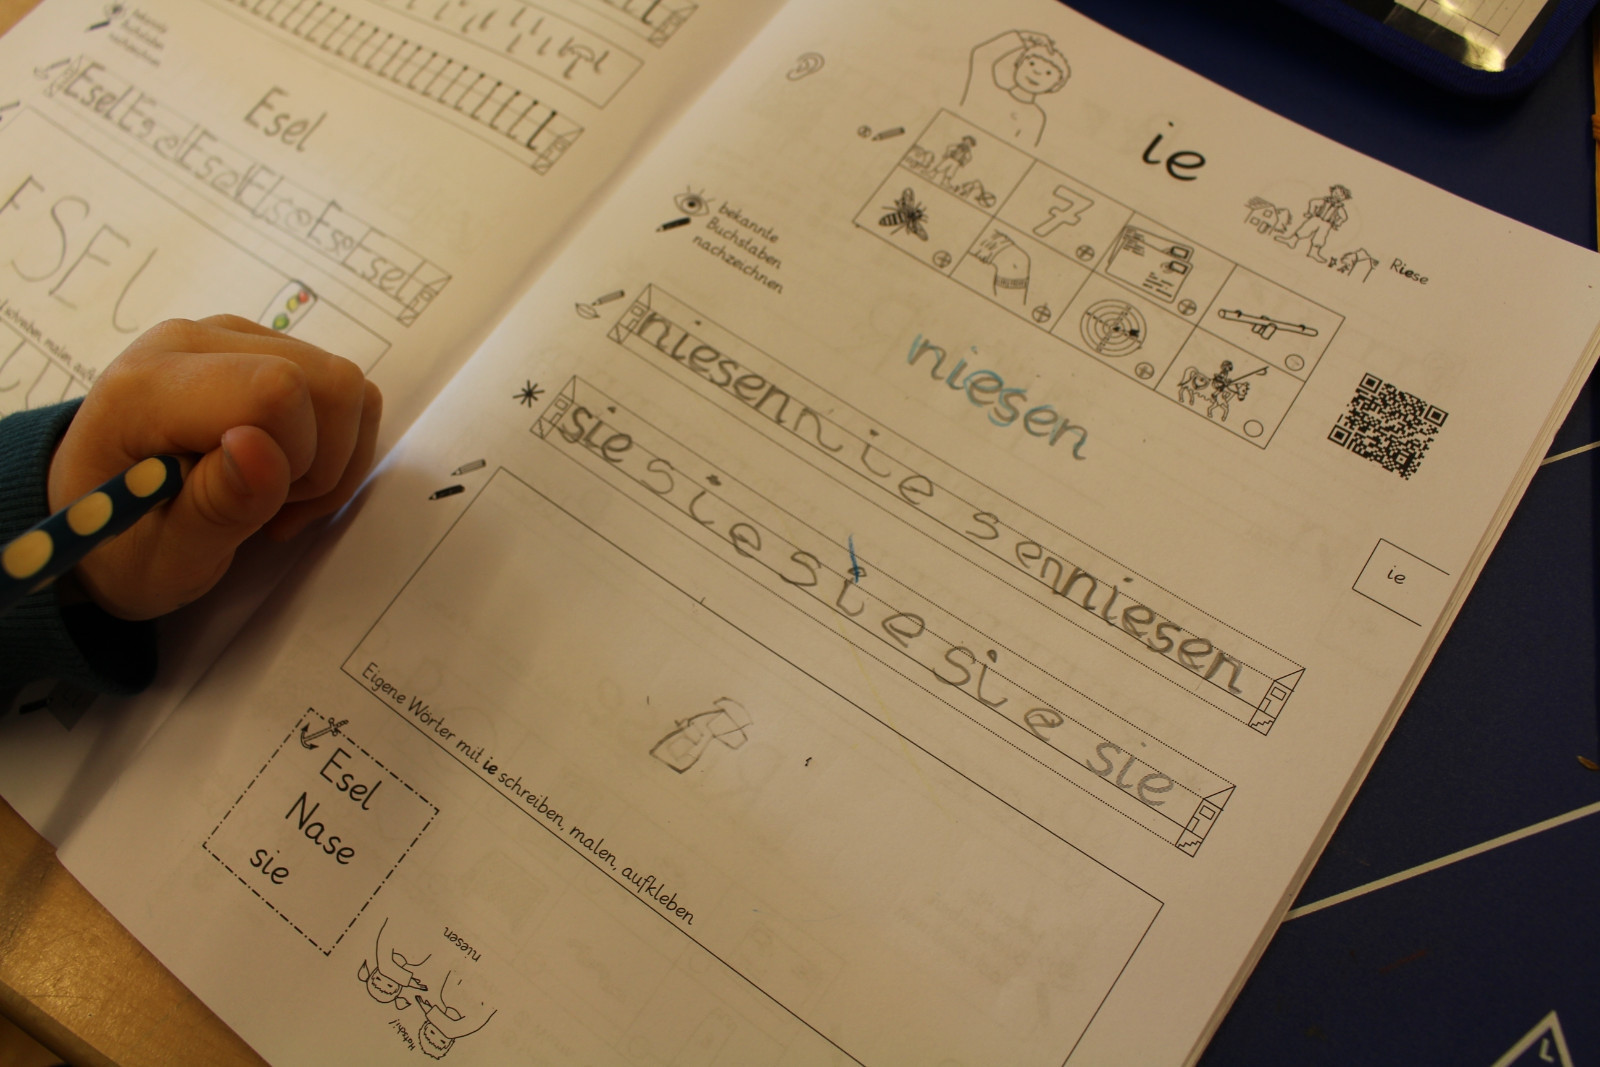 Esel
Esel Es el Esel Else Ese Esel
ESEL
schreiben, malen, aufk
ie
Riese
7
bekannte
Buchstaben
nachzeichnen
niesen
niesen n i e s en niesen
sie s i e s i e si e sie
ie
Eigene Wörter mit ie schreiben, malen, aufkleben
Esel
Nase
sie
niesen
Hatschi!